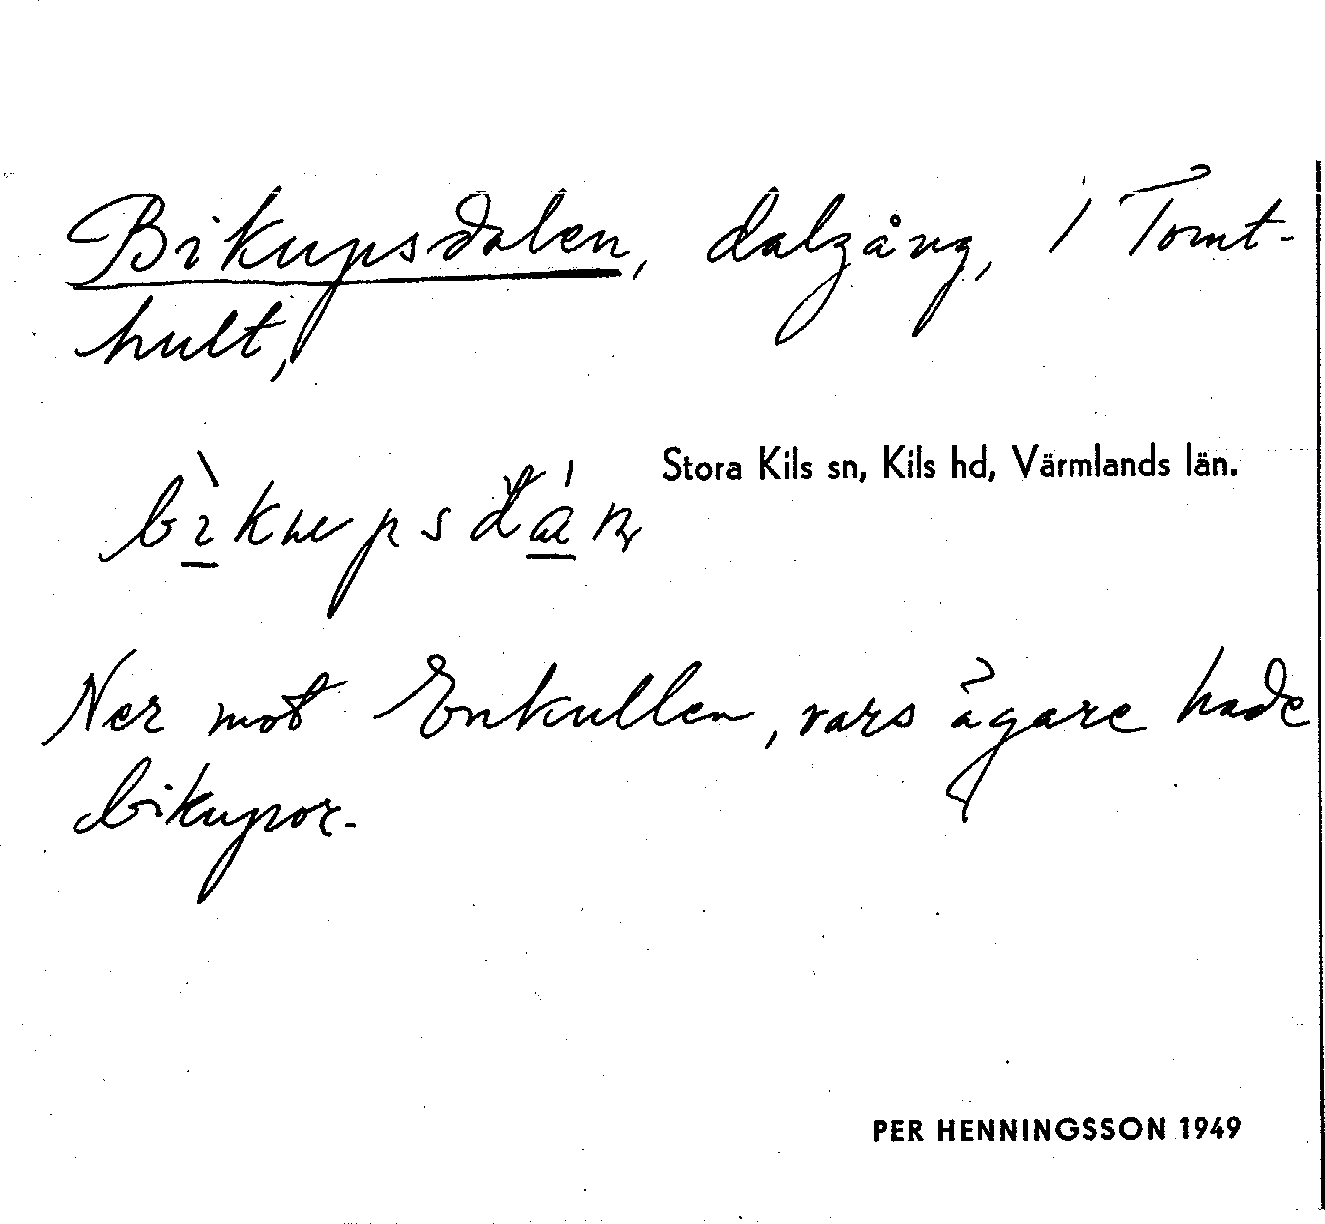 Bikupsdalen, dalgång, i Tomt-
hult,
Stora Kils sn, Kils hd, Värmlands län.
Ner mot Enkullen, vars ägare hade
bikupor.
PER HENNINGSSON 1949